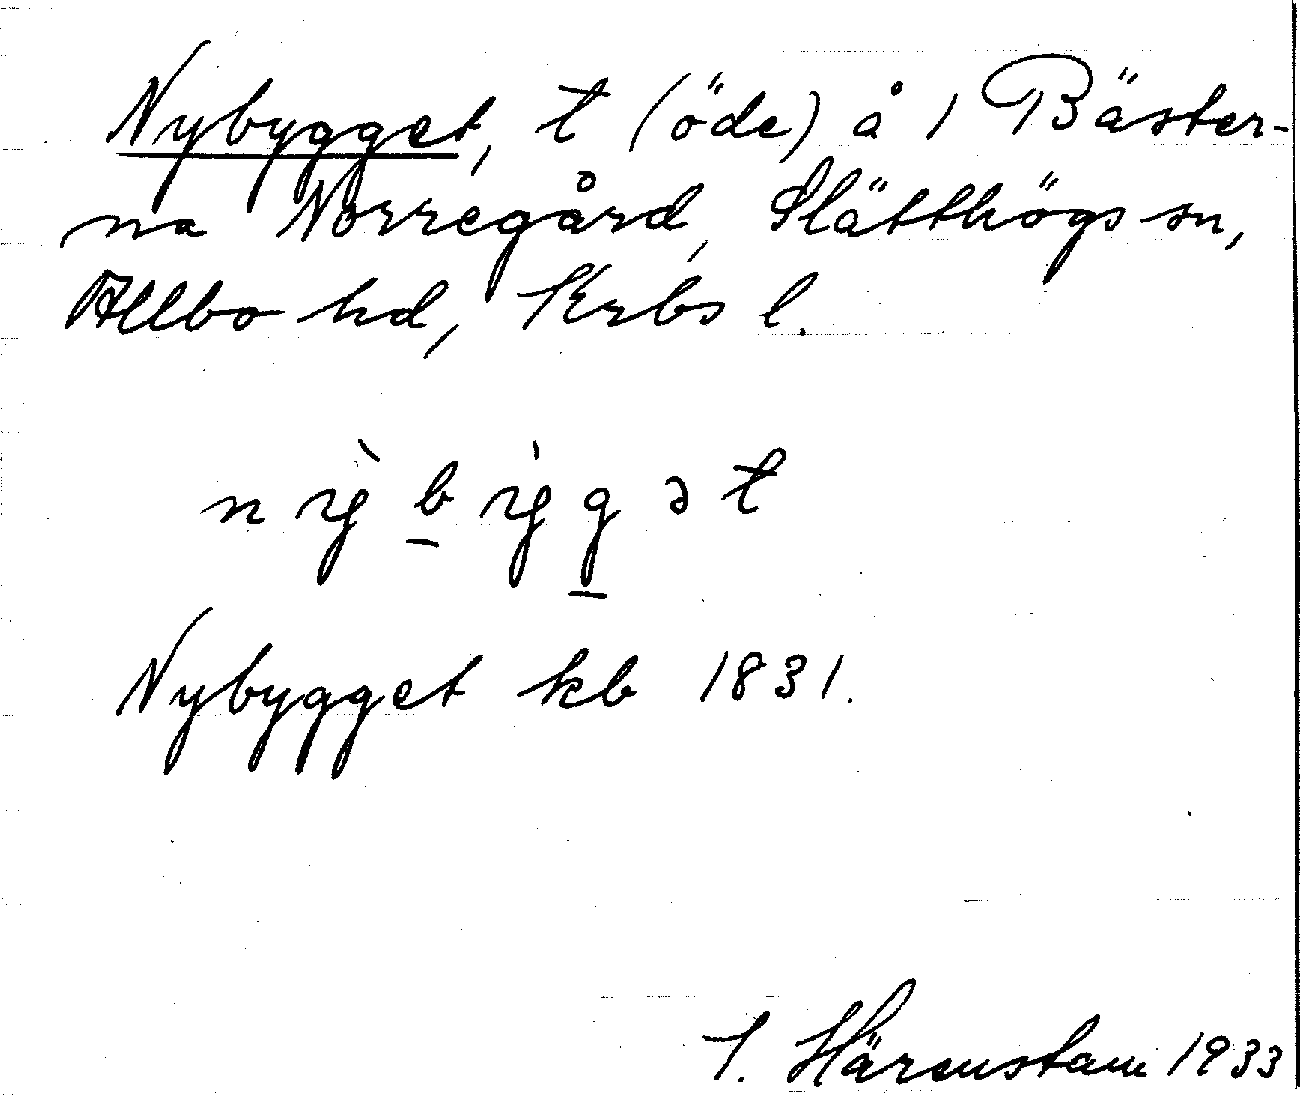 Nybygget, t (öde) å 1 Bäster-
na Norregård, Slätthögs sn,
Allbo hd, Krbs l.
nỳbẏgət
Nybygget kb 1831.
T. Härenstam 1933